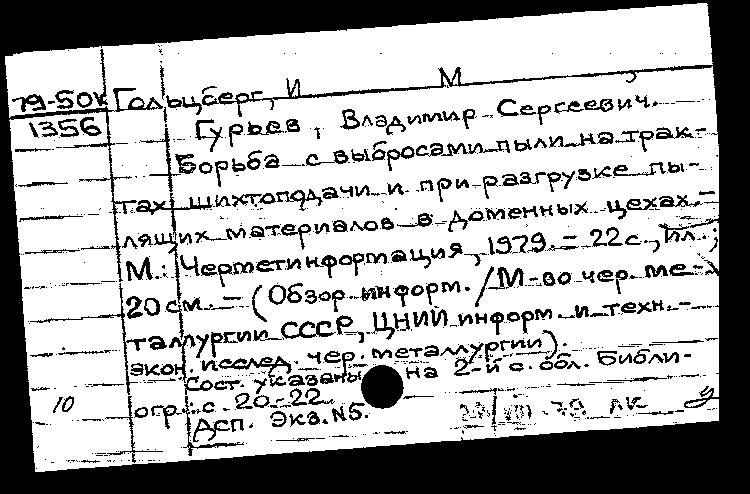 79-50к Гольцберг, И М
1356 Гурьев, Владимир Сергеевич.
Борьба с выбросами пыли на трак-
тах шихтоподачи и при разгрузке пы-
лящих материалов в доменных цехах.-
М.: Черметинформация, 1979. - 22 с., ил.;
20 см. - (Обзор. информ. / М-во чер. ме-
таллургии СССР, ЦНИИ информ. и техн.-
экон. исслед. чер. металлургии).
Сост. указаны на 2-й с. обл. Библи-
10 огр.: с. 20-22
ДСП. Экз. №5. VIII .79 ЛК